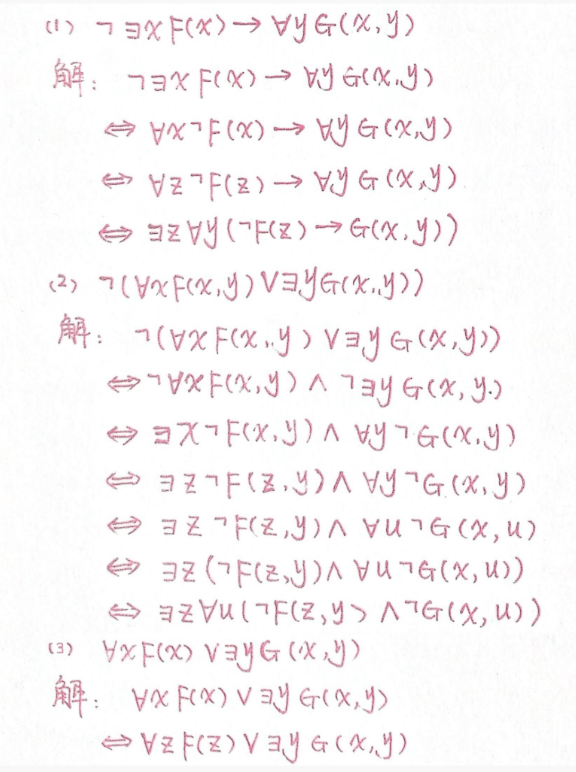 (1) ¬∃xF(x)→∀yG(x,y)
解: ¬∃xF(x)→∀yG(x,y)
⇔ ∀x¬F(x)→∀yG(x,y)
⇔ ∀z¬F(z)→∀yG(x,y)
⇔ ∃z∀y(¬F(z)→G(x,y))
(2) ¬(∀xF(x,y)∨∃yG(x,y))
解: ¬(∀xF(x,y)∨∃yG(x,y))
⇔¬∀xF(x,y)∧¬∃yG(x,y)
⇔ ∃x¬F(x,y)∧∀y¬G(x,y)
⇔ ∃z¬F(z,y)∧∀y¬G(x,y)
⇔ ∃z¬F(z,y)∧∀u¬G(x,u)
⇔ ∃z(¬F(z,y)∧∀u¬G(x,u))
⇔ ∃z∀u(¬F(z,y)∧¬G(x,u))
(3) ∀xF(x)∨∃yG(x,y)
解: ∀xF(x)∨∃yG(x,y)
⇔∀zF(z)∨∃yG(x,y)